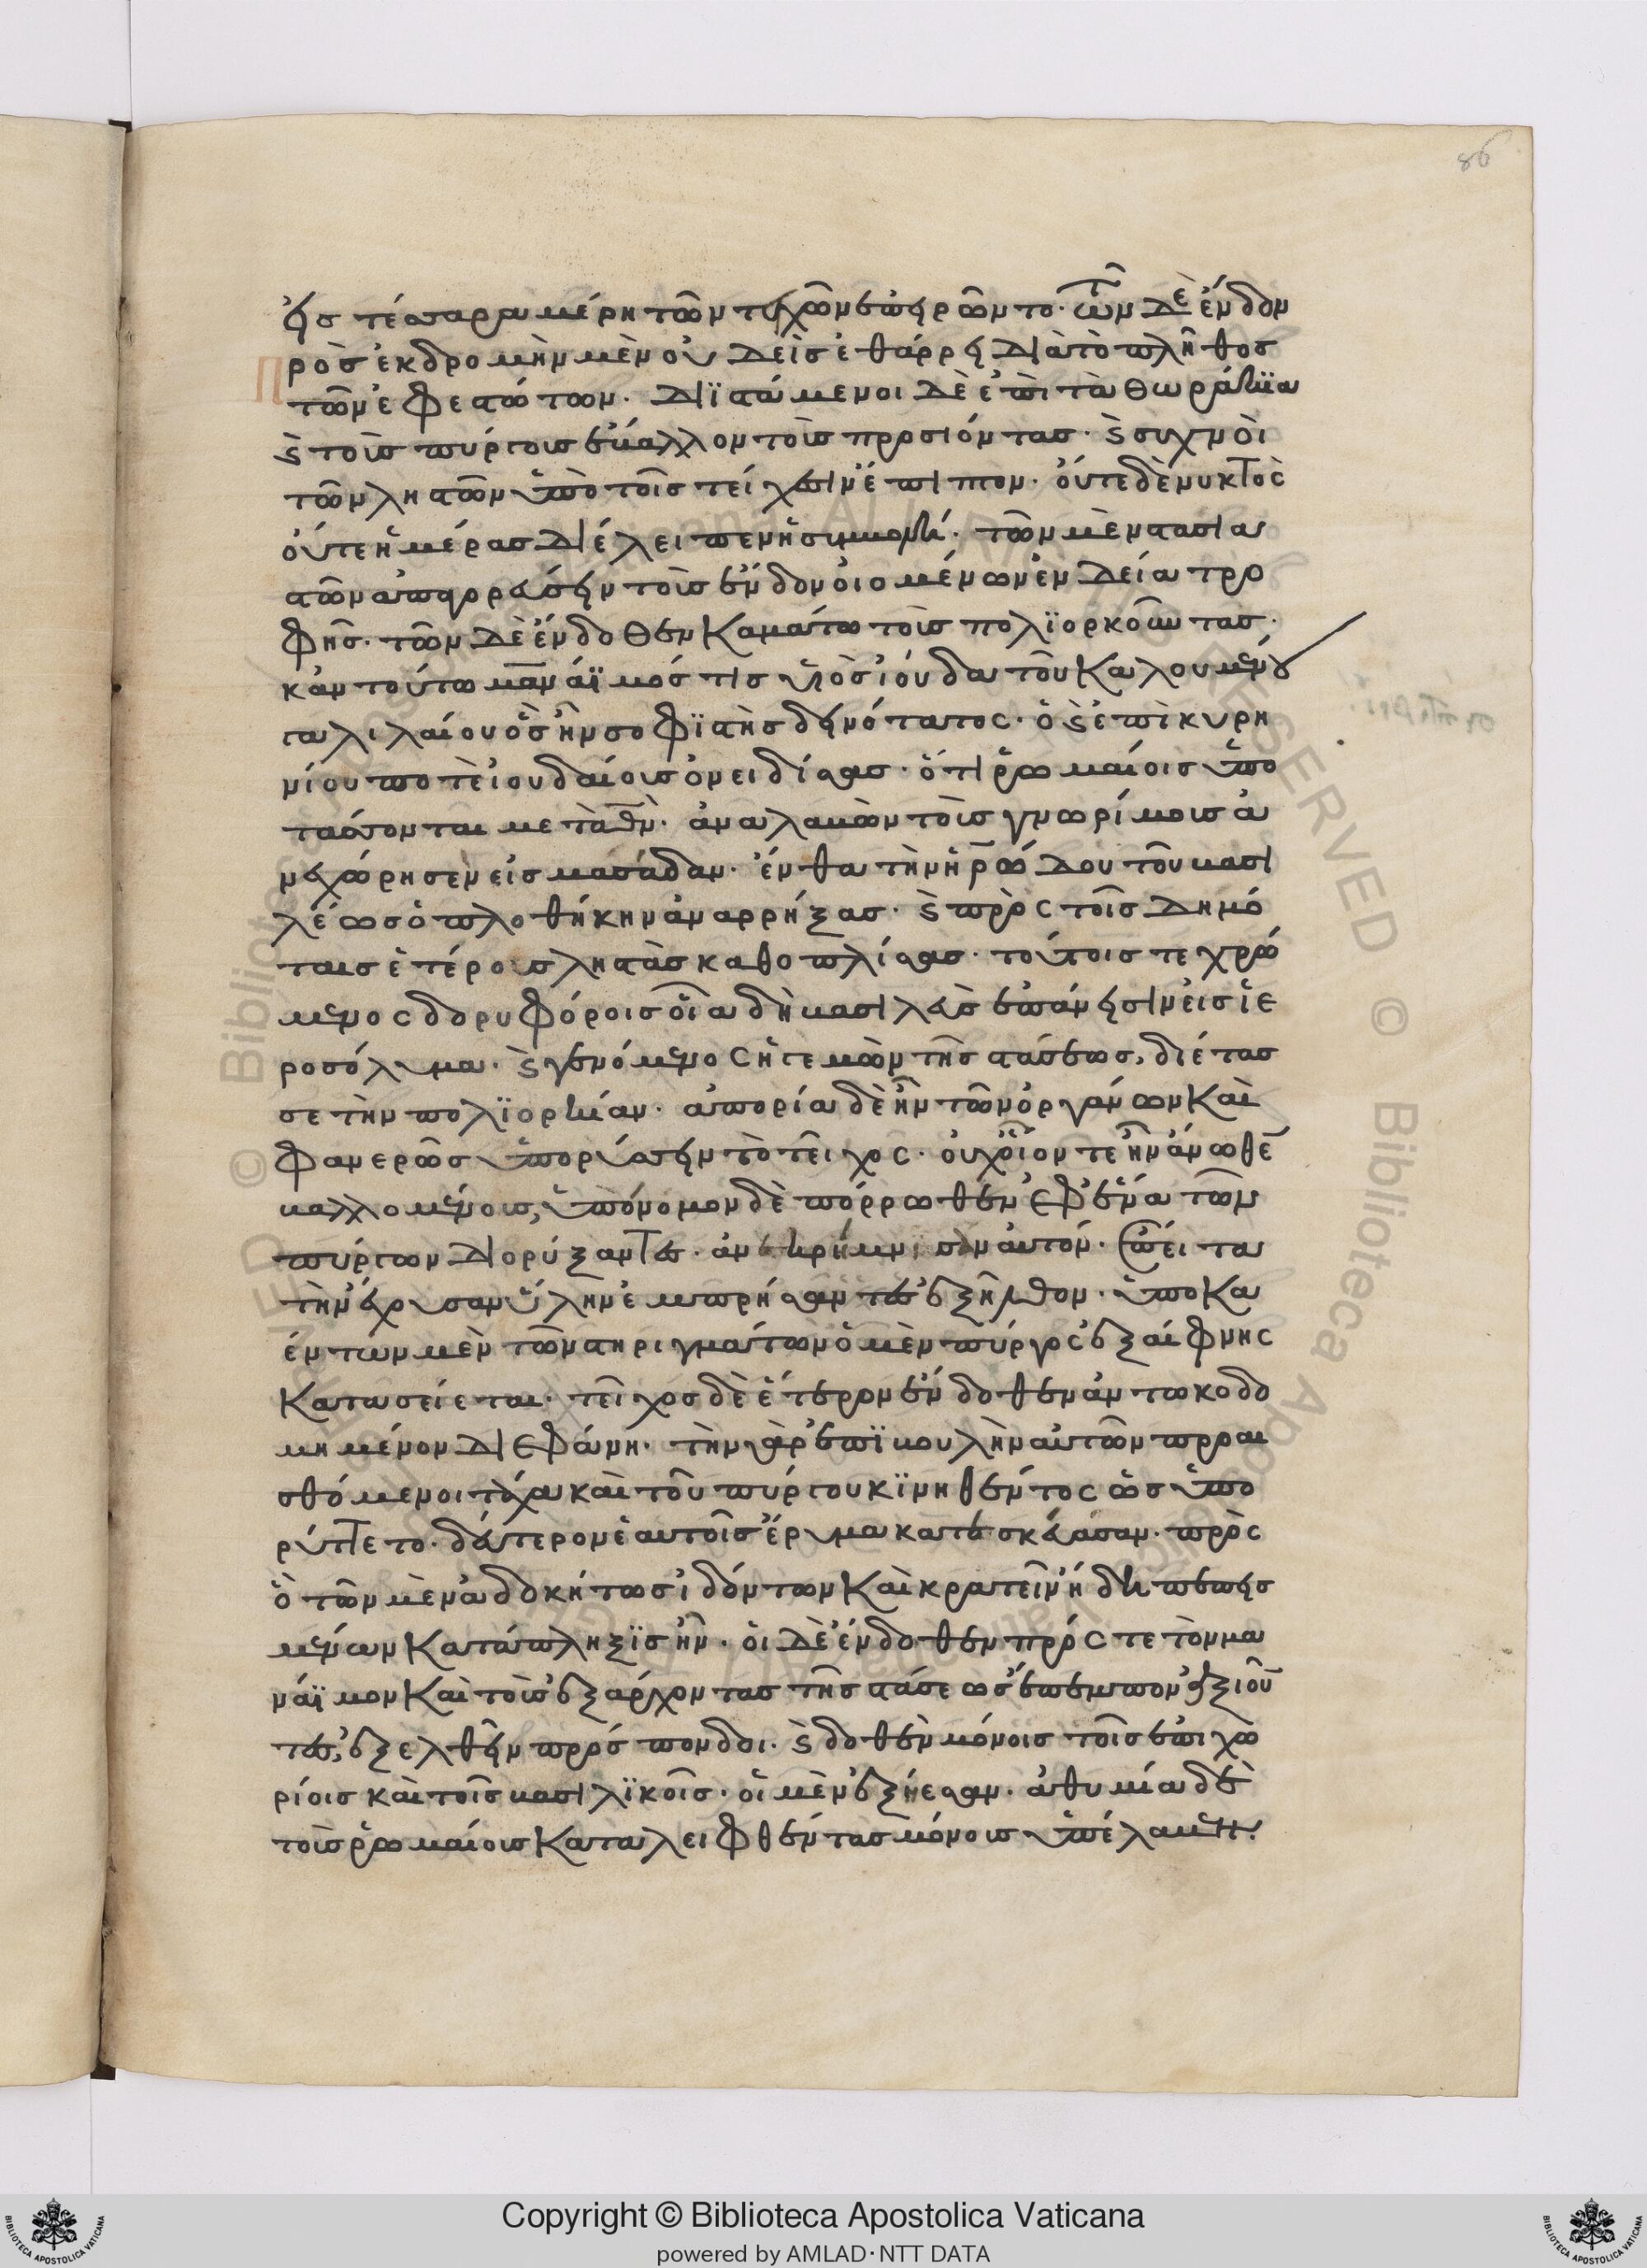 86
εἰς τέσσαρα μέρη τῶν τειχῶν ἐπειρῶντο· τῶν δὲ ἔνδον
πρὸς ἐκδρομὴν μὲν οὐδεὶς ἐθάρρει διὰ τὸ πλῆθος
τῶν ἐφεστώτων. διϊστάμενοι δὲ ἐπὶ τὰ θωράκια
καὶ τοῖς πύργοις ἔβαλλον τοῖς προσιόντας· καὶ συχνοὶ
τῶν λῃστῶν ὑπὸ τοῖς τείχεσιν ἔπιπτον. οὔτε δὲ νυκτὸς
οὔτε ἡμέρας διέλειπεν ἡ συμβολή. τῶν μὲν στασια
στῶν ἀπαγορεύσειν τοῖς ἔνδον οἰομένων ἐνδείᾳ τρο
φῆς· τῶν δὲ ἔνδοθεν καμάτῳ τοῖς πολϊορκοῦντας·
κἀν τούτῳ μανάϊμός τις υἱὸς ἰούδα τοῦ καλουμένου
γαλιλαίου ὃς ἦν σοφϊστὴς δεινότατος· ὁ καὶ ἐπὶ κυρη
νίου ποτὲ ἰουδαίους ὀνειδίσας· ὅτι ῥωμαίοις ὑπο
τάσσονται μετὰ θν̄· ἀναλαβὼν τοῖς γνωρίμοις ἀ
νεχώρησεν εἰς μασάδαν· ἔνθα τὴν ἡρώδου τοῦ βασι
λέως ὁπλοθήκην ἀναρρήξας· καὶ πρὸς τοῖς δημό
ταις ἑτέροις λῃστὰς καθοπλίσας· τούτοις τε χρώ
μενος δορυφόροις οἷα δὴ βασιλεὺς ἐπάνεισιν εἰς ἱε
ροσόλυμα· καὶ γενόμενος ἡγεμὼν τῆς στάσεως, διέτας
σε τὴν πολϊορκίαν. ἀπορία δὲ ἦν τῶν ὀργάνων καὶ
φανερῶς ὑπορύσσειν τὸ τεῖχος· οὐχ οἷόν τε ἦν ἄνωθε
βαλλομένοις, ὑπόνομον δὲ πόρρωθεν ἐφ ἕνα τῶν
πύργων διορύξαντες· ἀνεκρήμνισαν αὐτόν. ἔπειτα
τὴν ἀνέχουσαν ὕλην ἐμπρήσαντες ἐξῆλθον· ὑποκα
έντων μὲν τῶν στηριγμάτων ὁ μὲν πύργος ἐξαίφνης
κατασείεται· τεῖχος δὲ ἕτερον ἔνδοθεν ἀντῳκοδο
μημένον διεφάνη· τὴν γὰρ ἐπϊβουλὴν αὐτῶν προαι
σθόμενοι τάχα καὶ τοῦ πύργου κϊνηθέντος ὡς ὑπω
ρύττετο· δεύτερον ἑαυτοῖς ἔρυμα κατεσκεύασαν· πρὸς
ὃ τῶν μὲν ἀδοκήτως ἰδόντων καὶ κρατεῖν ἤδη πεπεισ
μένων κατάπληξϊς ἦν. οἱ δὲ ἔνδοθεν πρός τε τὸν μα
νάϊμον καὶ τοῖς ἐξάρχοντας τῆς στάσεως ἔπεμπον ἀξιοῦ
τες, ἐξελθεῖν πρόσπονδοι. καὶ δοθὲν μόνοις τοῖς ἐπιχω
ρίοις καὶ τοῖς βασιλϊκοῖς· οἱ μὲν ἐξῄεσαν. ἀθυμία δὲ
τοῖς ῥωμαίοις καταλειφθέντας μόνοις ὑπέλαβεν.
© Biblioteca Apostolica Vaticana ALL RIGHTS RESERVED
Copyright © Biblioteca Apostolica Vaticana
powered by AMLAD·NTT DATA